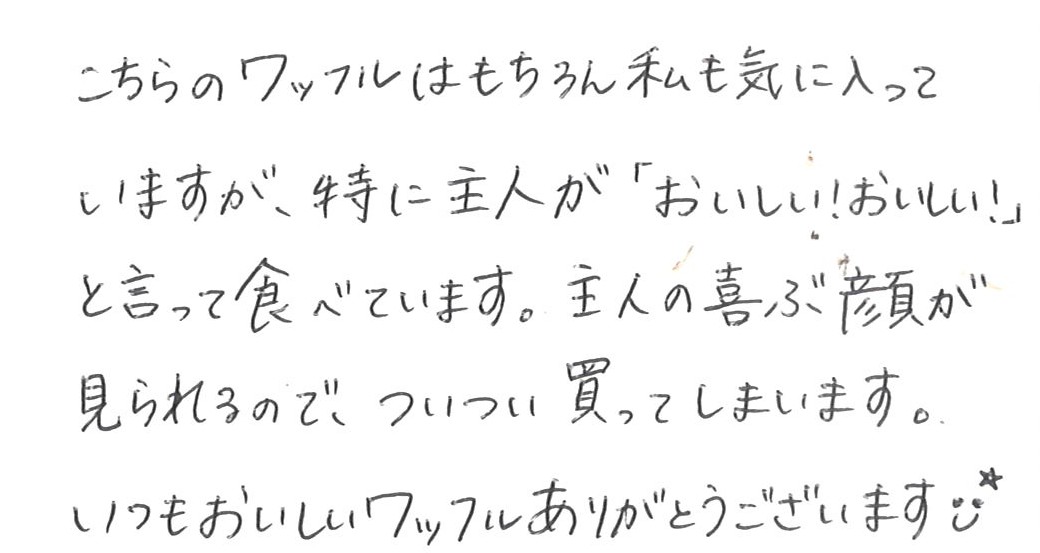 こちらのワッフルはもちろん私も気に入って
いますが、特に主人が「おいしい!おいしい!」
と言って食べています。主人の喜ぶ顔が
見られるので、ついつい買ってしまいます。
いつもおいしいワッフルありがとうございます